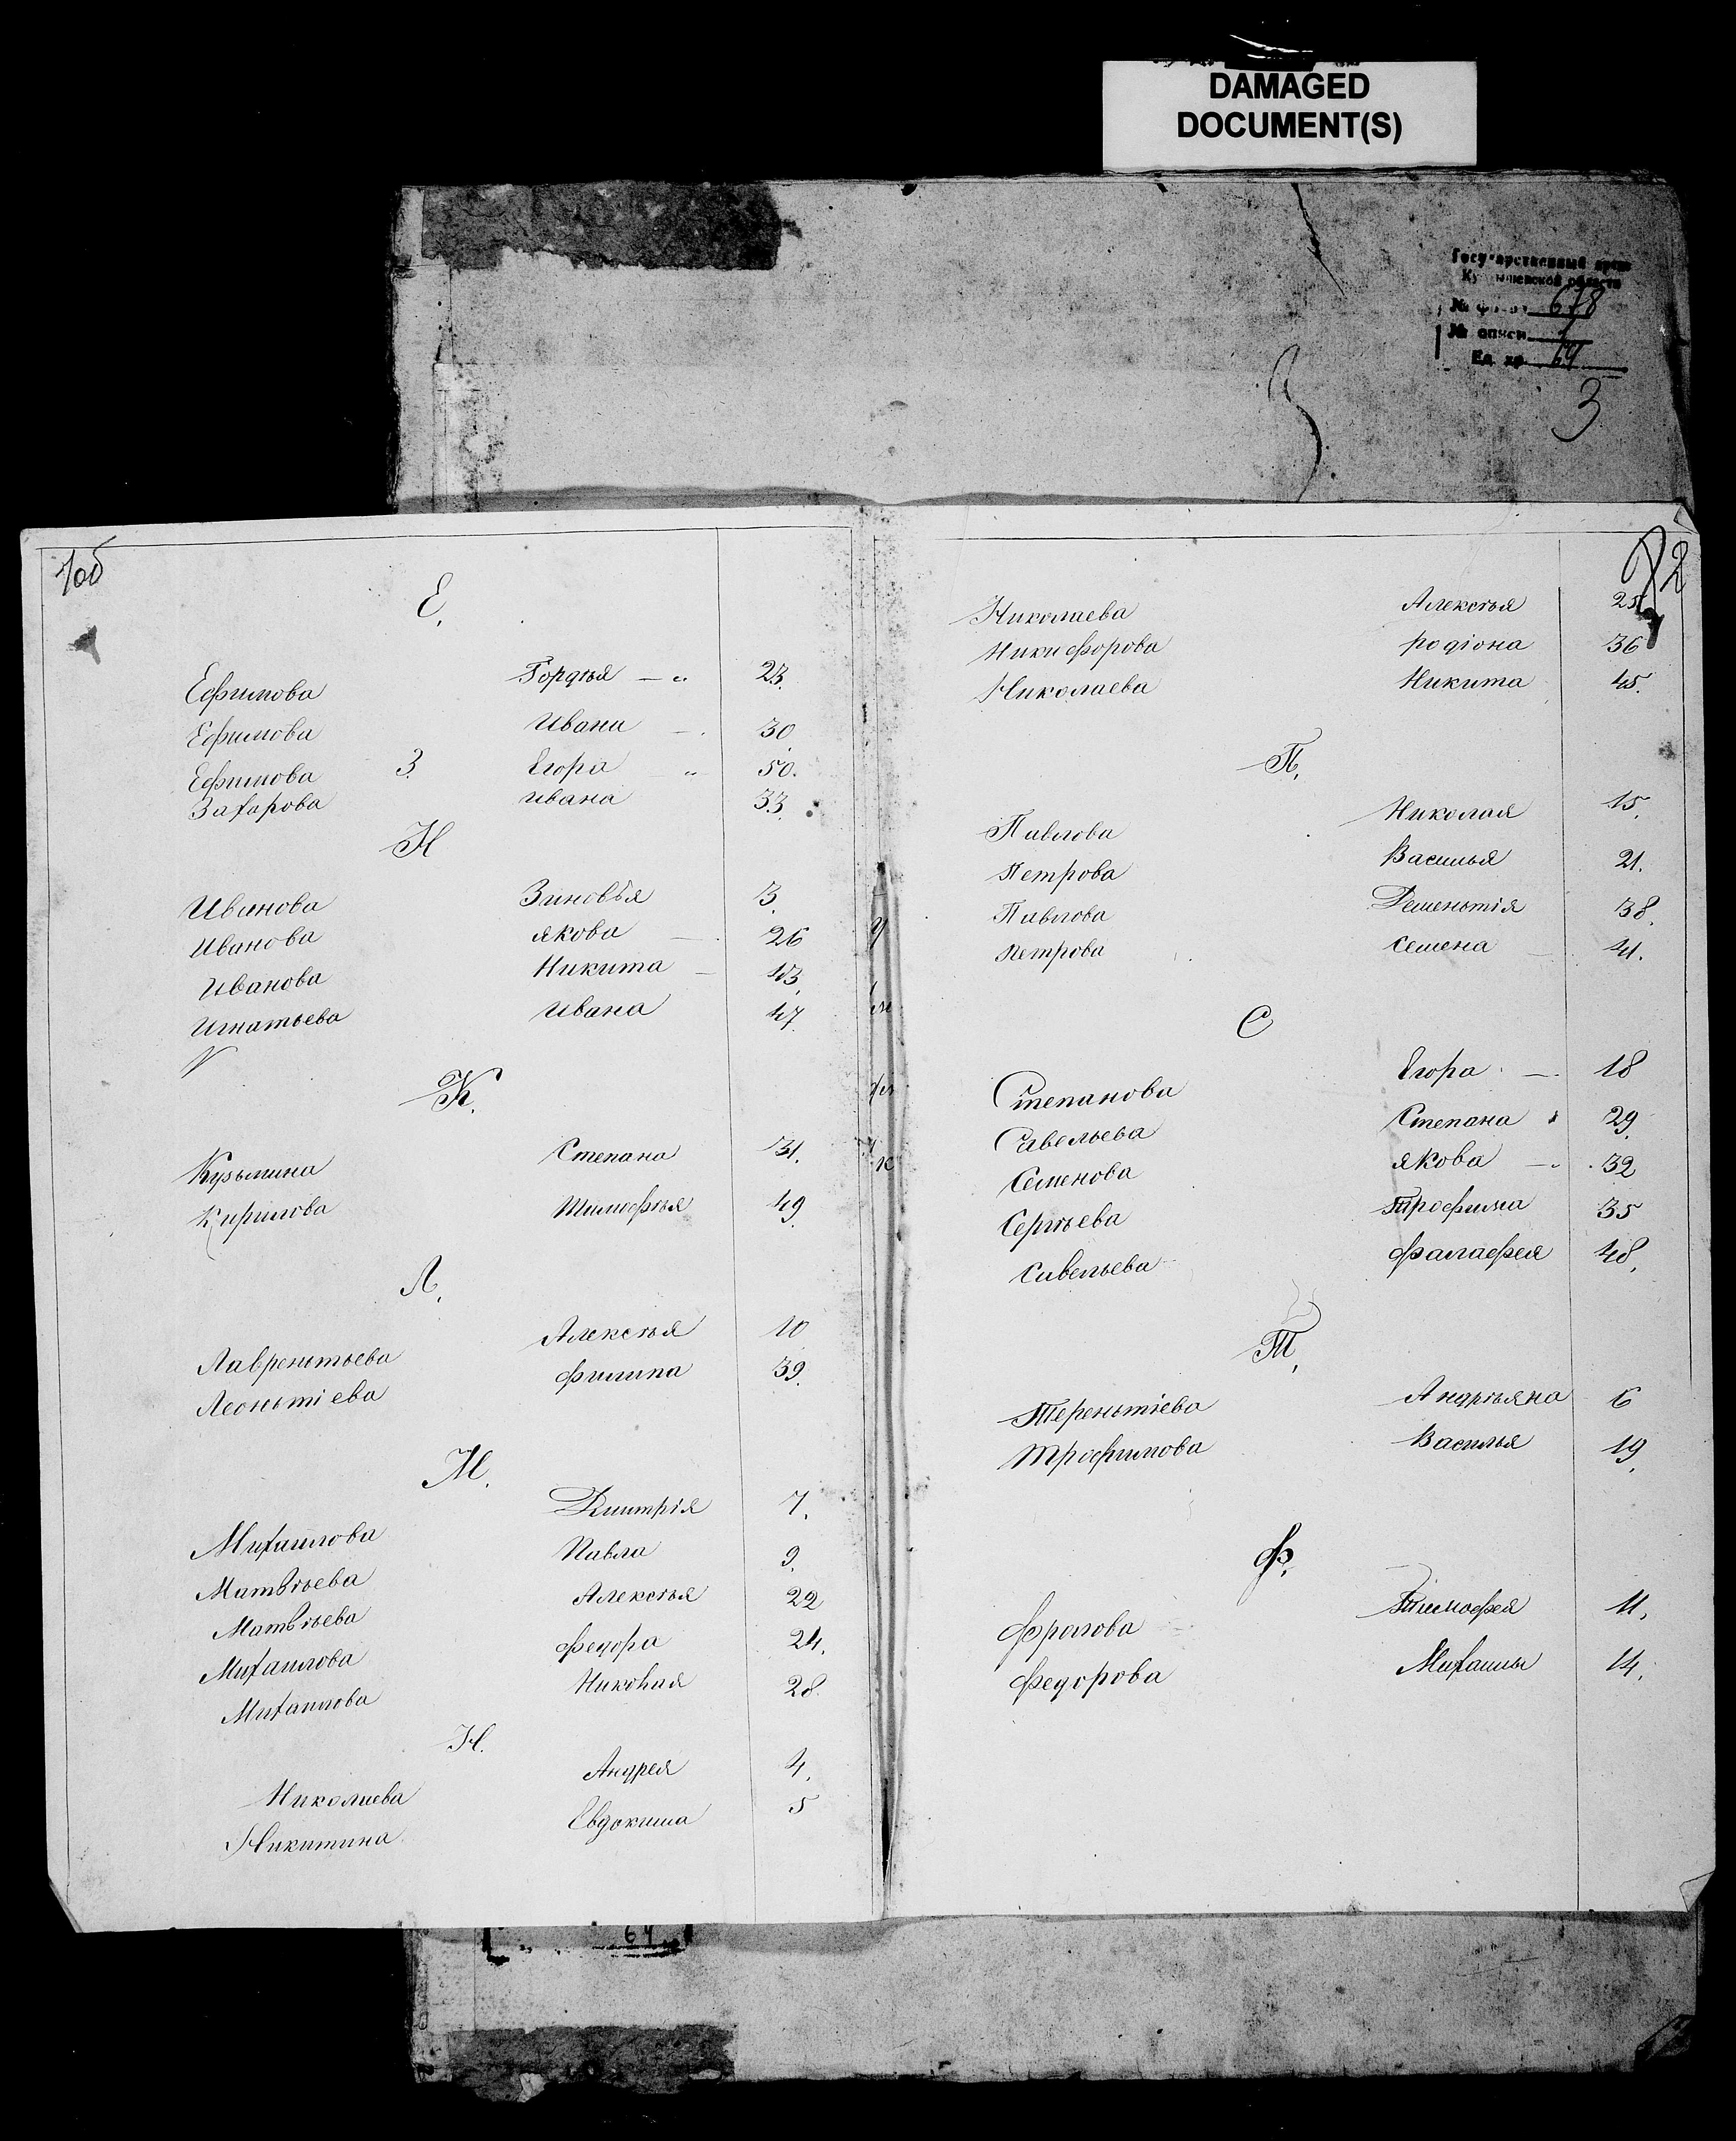 DAMAGED
DOCUMENT(S)
Государственный архив
Куйбышевской области
№ фонда 678
№ описи 1
Ед. хр. 64
3
1об
Е.
Ефимова Гордѣя — „ 23.
Ефимова Ивана — . 30
Ефимова Егора „ 50.
З.
Захарова Ивана 33.
И
Иванова Зиновья 3.
Иванова Якова — 26
Иванова Никита — 43.
Игнатьева Ивана 47.
К.
Кузьмина Степана 31.
Кирилова Тимофѣя 49.
Л.
Лаврентьева Алексѣя 10
Леонтіева Филипа 39.
М.
Михаилова Дмитрія 7.
Матвѣева Павла 9.
Матвѣева Алексѣя 22
Михаилова Федора 24.
Михаилова Николая 28.
Н.
Николаева Андрея 4.
Никитина Евдокима 5
2
Николаева Алексѣя 25
Никифорова Родіона 36
Николаева Никита 45.
П.
Павлова Николая 15.
Петрова Василья 21.
Павлова Деменьтія 38.
Петрова Семена — 41.
С
Степанова Егора — 18
Савельева Степана 29.
Семенова Якова — 32
Сергѣева Трофима 35
Савельева Фалафея 48.
Т.
Тереньтіева Андріяна 6
Трофимова Василья 19.
Ф.
Фролова Тимофея 11.
Федорова Михаилы 14.
64